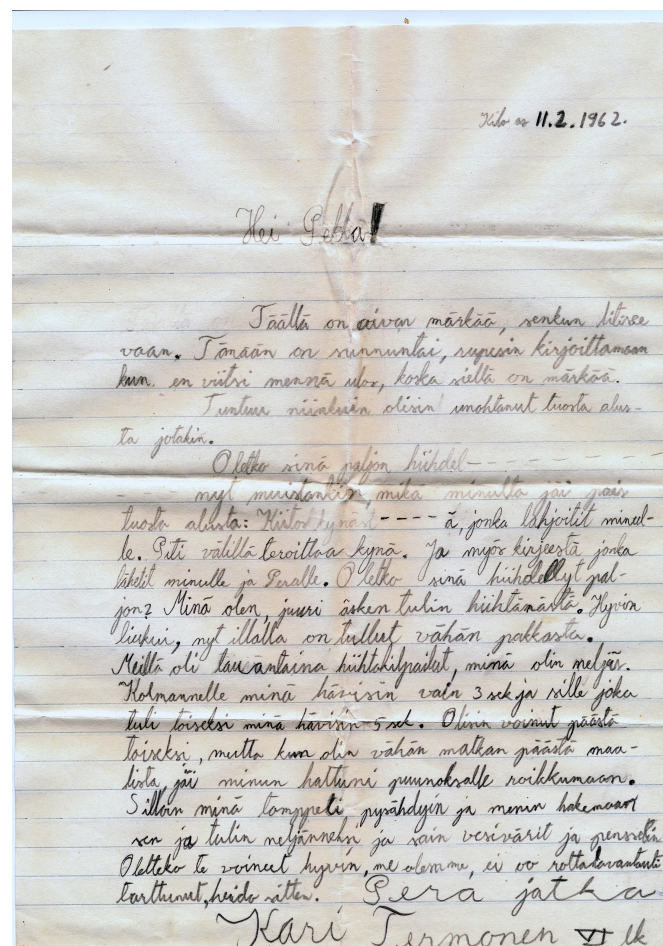 Kilo as 11.2.1962.
Hei Pekka!
Täällä on aivan märkää, senkun litisee
vaan. Tänään on sunnuntai, rupesin kirjoittamaan
kun en viitsi mennä ulos, koska siellä on märkää.
Tuntuu niinkuin olisin unohtanut tuosta alus-
ta jotakin.
Oletko sinä paljon hiihdel- - - - - - - -
nyt muistankin mikä minulta jäi pois
tuosta alusta: Kiitos kynäst - - - - ä, jonka lahjoitit minul-
le. Piti välillä teroittaa kynä. Ja myös kirjeestä jonka
lähetit minulle ja Peralle. Oletko sinä hiihdellyt pal-
jon? Minä olen, juuri äsken tulin hiihtämästä. Hyvin
liukui, nyt illalla on tullut vähän pakkasta.
Meillä oli lauantaina hiihtokilpailut, minä olin neljäs.
Kolmannelle minä hävisin vain 3 sek ja sille joka
tuli toiseksi minä hävisin 5 sek. Olisin voinut päästä
toiseksi, mutta kun olin vähän matkan päästä maa-
lista, jäi minun hattuni puunoksalle roikkumaan.
Silloin minä tomppeli pysähdyin ja menin hakemaan
sen ja tulin neljänneksi ja sain vesivärit ja pensselin.
Oletteko te voineet hyvin, me olemme, ei oo
tarttunut, sitten. Pera jatkaa
Kari Termonen VI lk